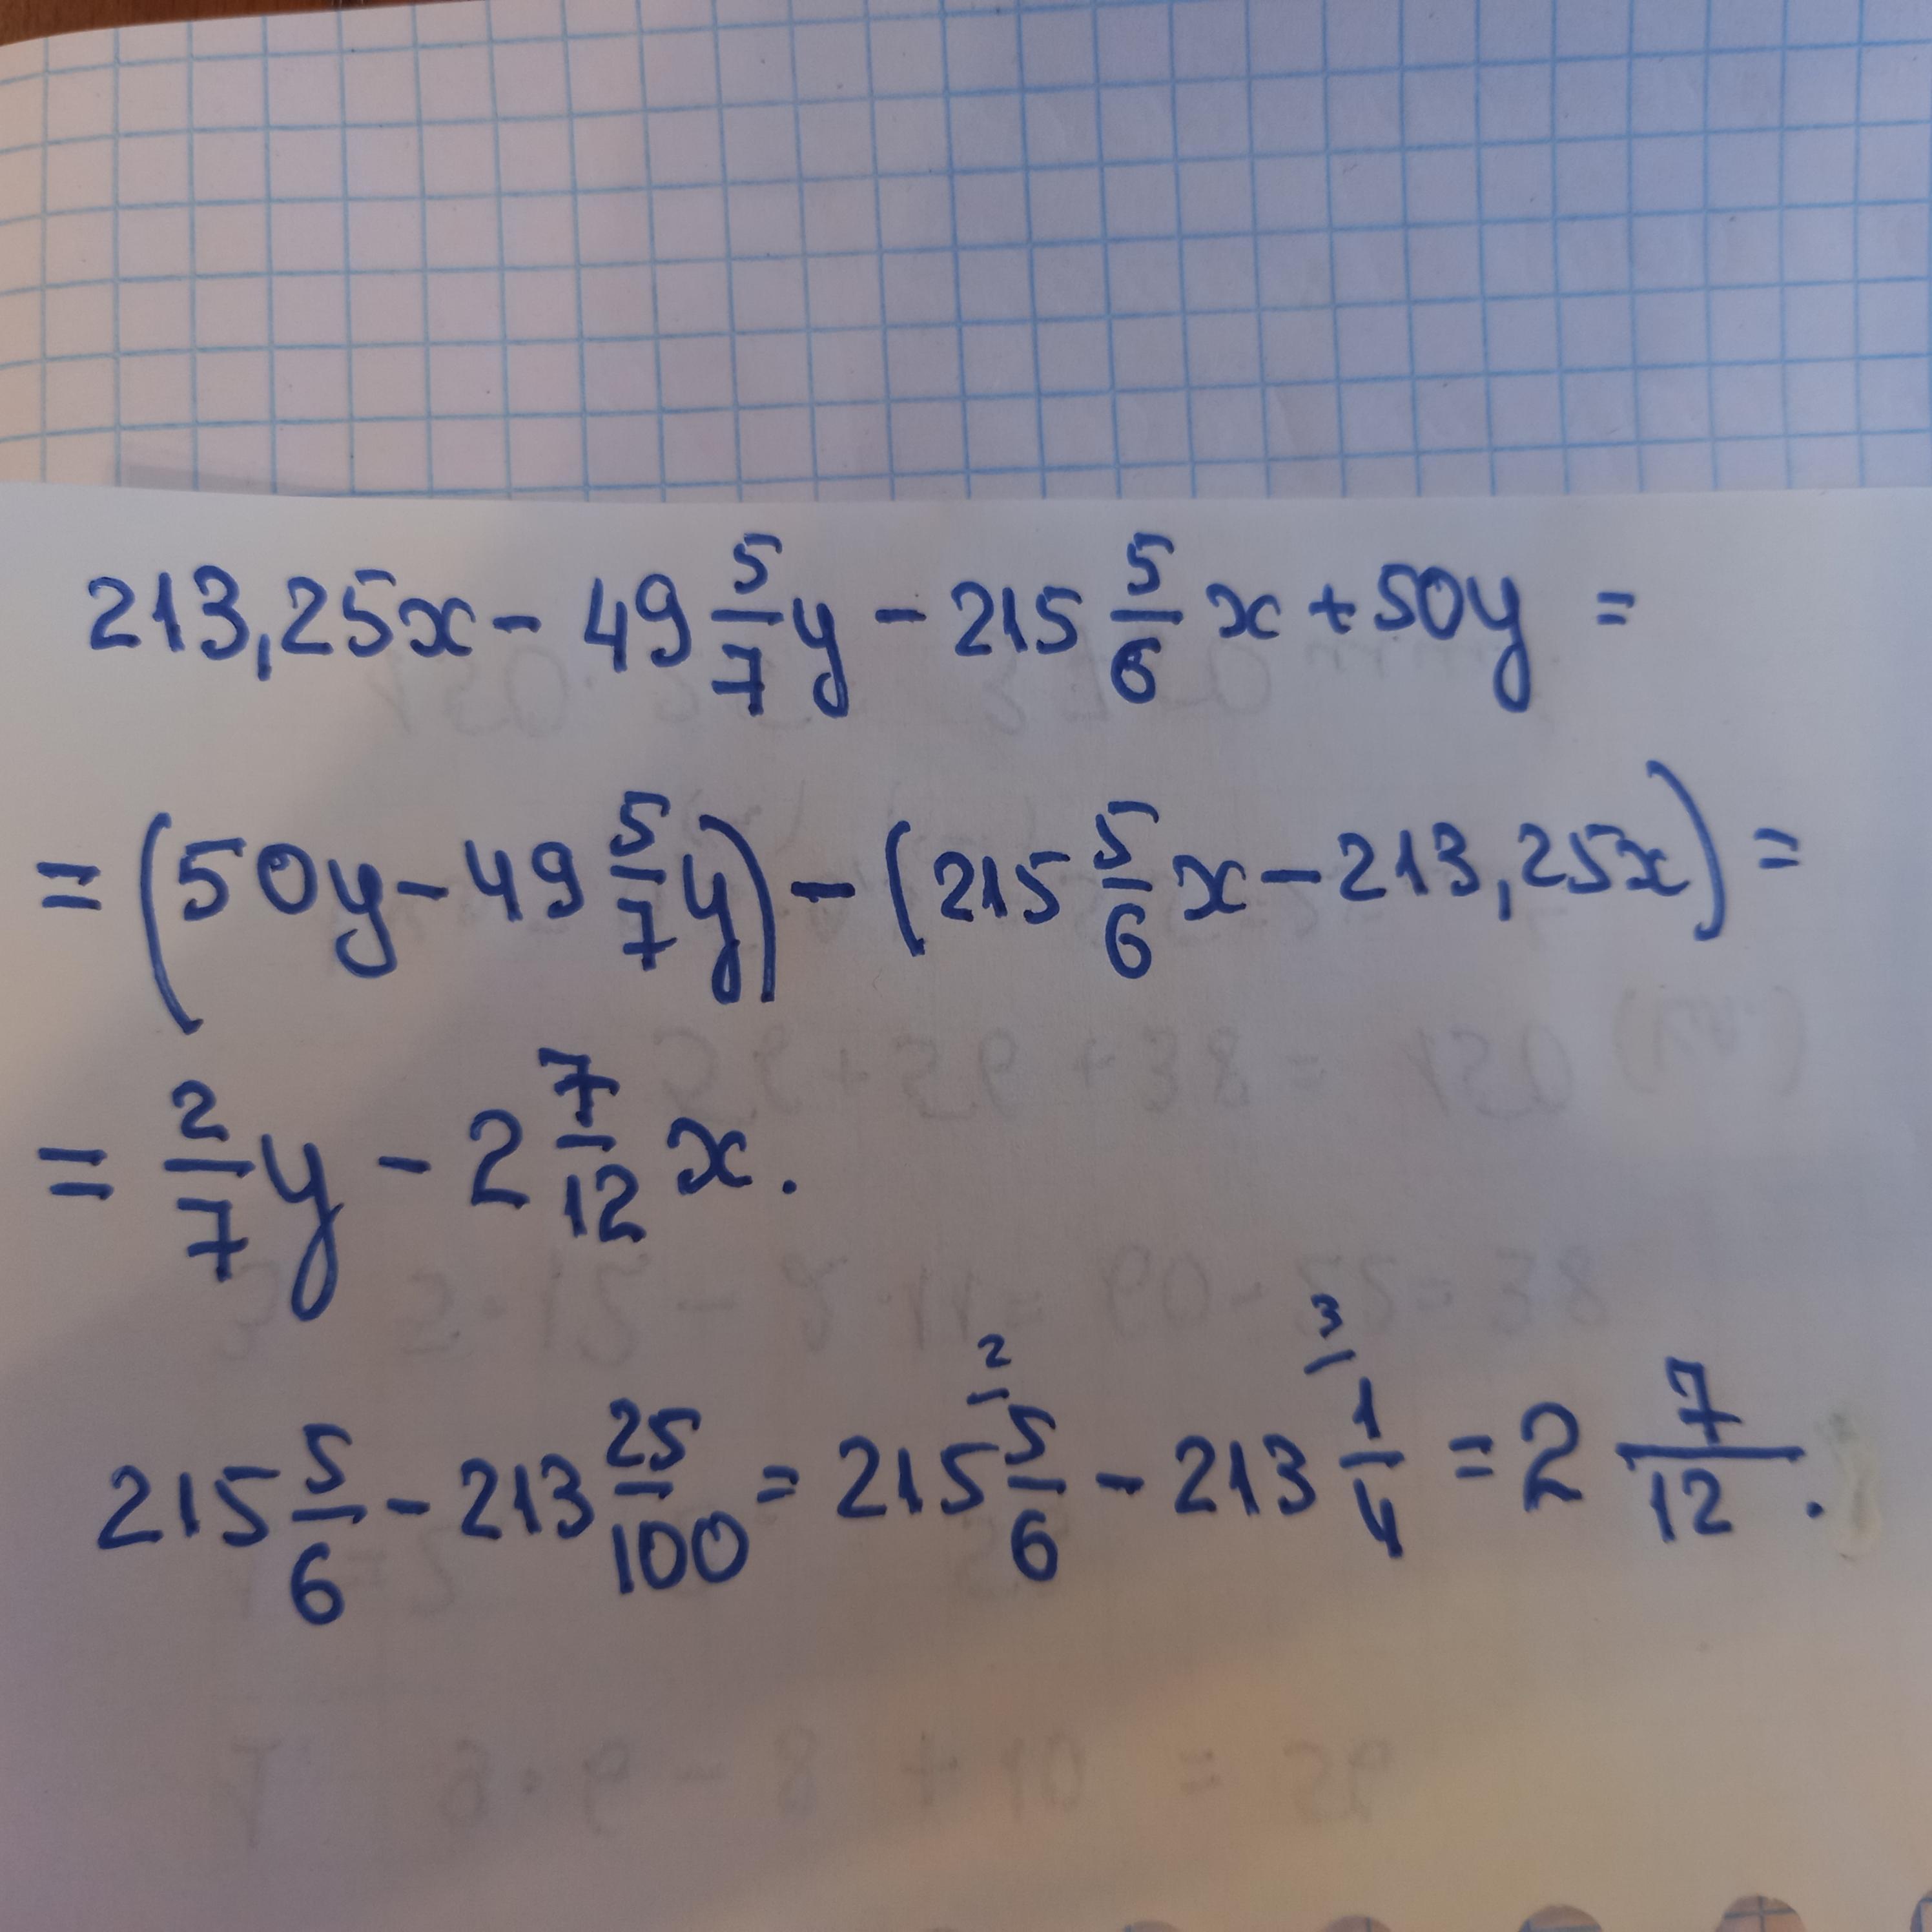 213,25x - 49 5/7 y - 215 5/6 x + 50y =
= (50y - 49 5/7 y) - (215 5/6 x - 213,25x) =
= 2/7 y - 2 7/12 x.
215 5/6 - 213 25/100 = 215 5/6 (2) - 213 1/4 (3) = 2 7/12.